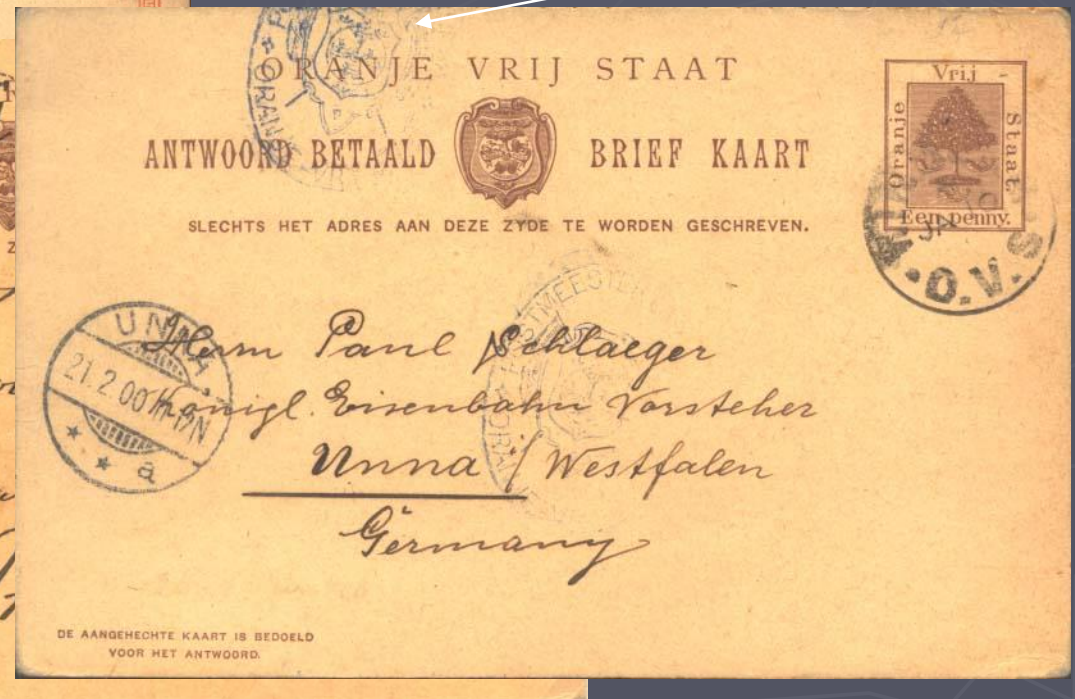 ORANJE VRIJ STAAT
ANTWOORD BETAALD BRIEF KAART
SLECHTS HET ADRES AAN DEZE ZYDE TE WORDEN GESCHREVEN.
Vrij -
Oranje
Staat.
Een penny.
ORAN
O.V.S
POSTMEESTER
ORA
UNNA
21.2.00 11-12N
* * a
Herrn Paul Schlaeger
Königl. Eisenbahn Vorsteher
Unna / Westfalen
Germany
DE AANGEHECHTE KAART IS BEDOELD
VOOR HET ANTWOORD.